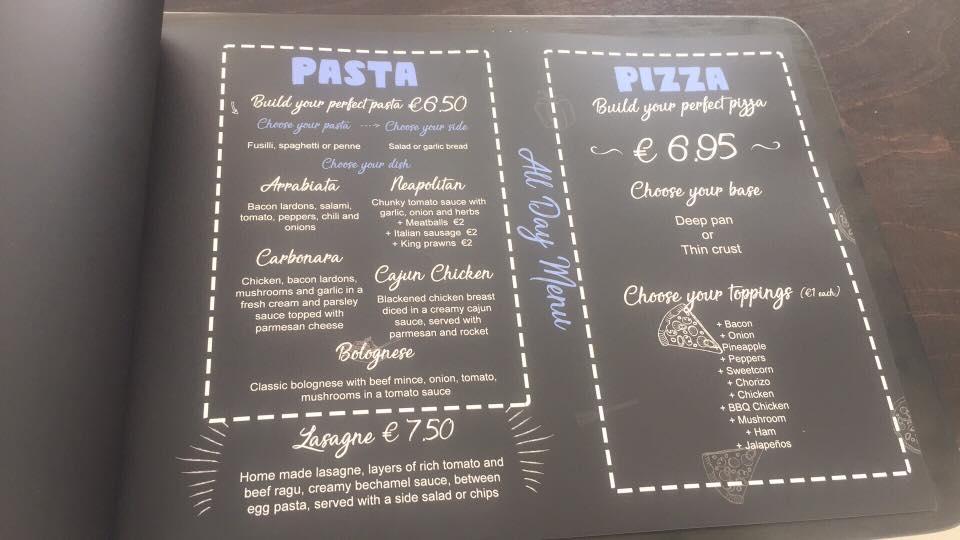 PASTA
Build your perfect pasta €6.50
Choose your pasta ----> Choose your side
Fusilli, spaghetti or penne
Salad or garlic bread
Choose your dish
Arrabiata
Bacon lardons, salami,
tomato, peppers, chili and
onions
Neapolitan
Chunky tomato sauce with
garlic, onion and herbs
+ Meatballs €2
+ Italian sausage €2
+ King prawns €2
Carbonara
Chicken, bacon lardons,
mushrooms and garlic in a
fresh cream and parsley
sauce topped with
parmesan cheese
Cajun Chicken
Blackened chicken breast
diced in a creamy cajun
sauce, served with
parmesan and rocket
Bolognese
Classic bolognese with beef mince, onion, tomato,
mushrooms in a tomato sauce
Lasagne € 7.50
Home made lasagne, layers of rich tomato and
beef ragu, creamy bechamel sauce, between
egg pasta, served with a side salad or chips
All Day Menu
PIZZA
Build your perfect pizza
~ € 6.95 ~
Choose your base
Deep pan
or
Thin crust
Choose your toppings (€1 each)
+ Bacon
+ Onion
+ Pineapple
+ Peppers
+ Sweetcorn
+ Chorizo
+ Chicken
+ BBQ Chicken
+ Mushroom
+ Ham
+ Jalapeños